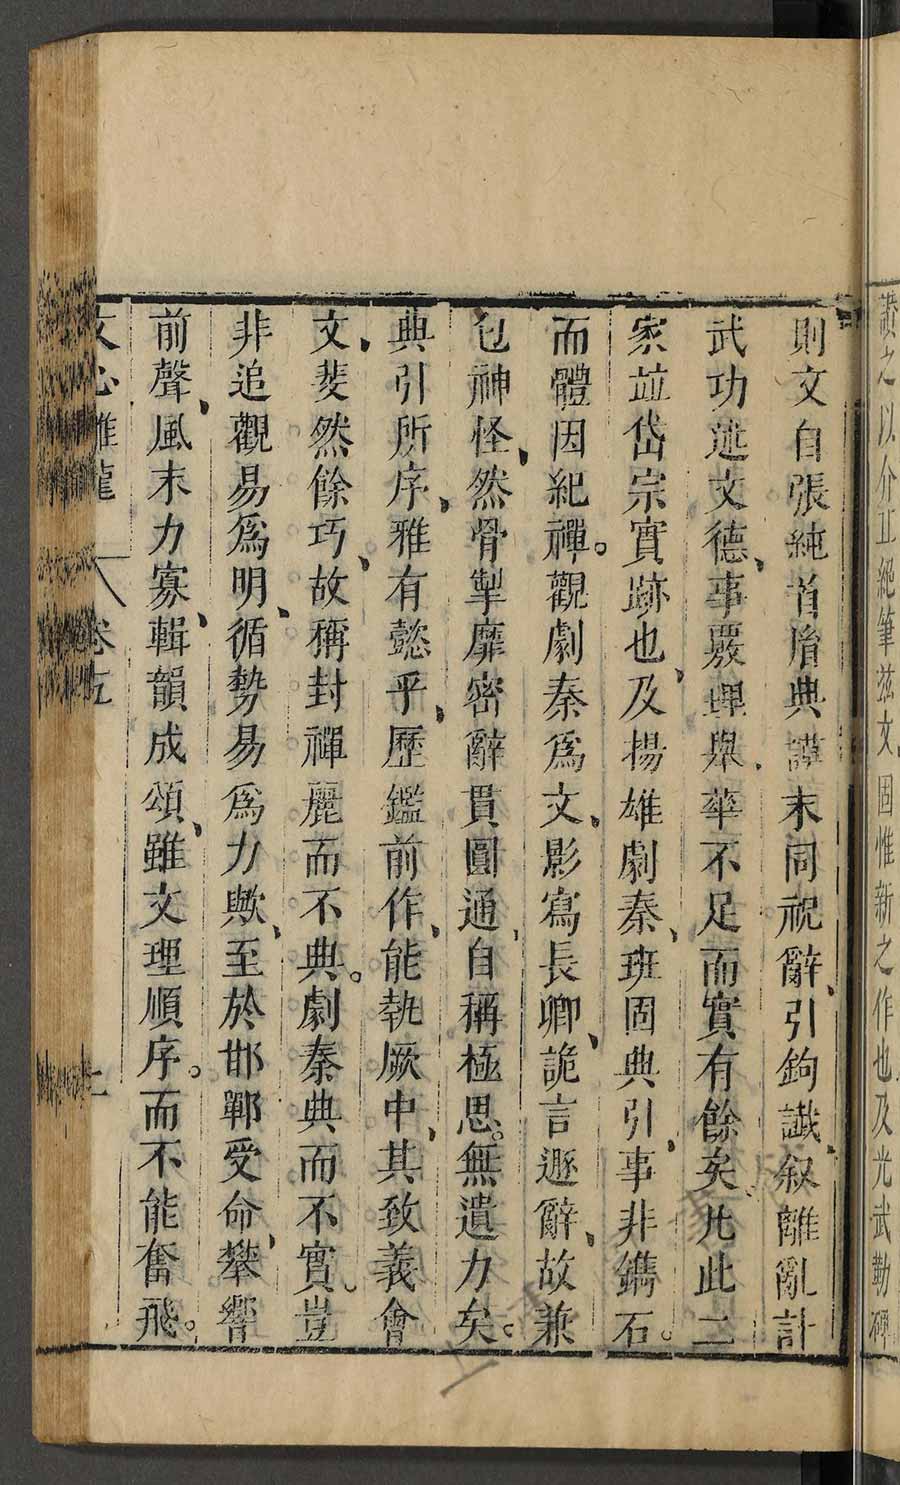 讃之以介丘絕筆茲文固惟新之作也及光武勒碑
則文自張純首胤典謨末同祝辭引鉤讖叙離亂計
武功述文德事覈理舉華不足而實有餘矣凡此二
家並岱宗實跡也及揚雄劇秦班固典引事非鐫石
而體因紀禪觀劇秦爲文影寫長卿詭言遯辭故兼
包神怪然骨掣靡密辭貫圓通自稱極思無遺力矣
典引所序雅有懿乎歷鑑前作能執厥中其致義會
文斐然餘巧故稱封禪麗而不典劇秦典而不實豈
非追觀易爲明循勢易爲力歟至於邯鄲受命攀響
前聲風末力寡輯韻成頌雖文理順序而不能奮飛
文心雕龍 卷五 上